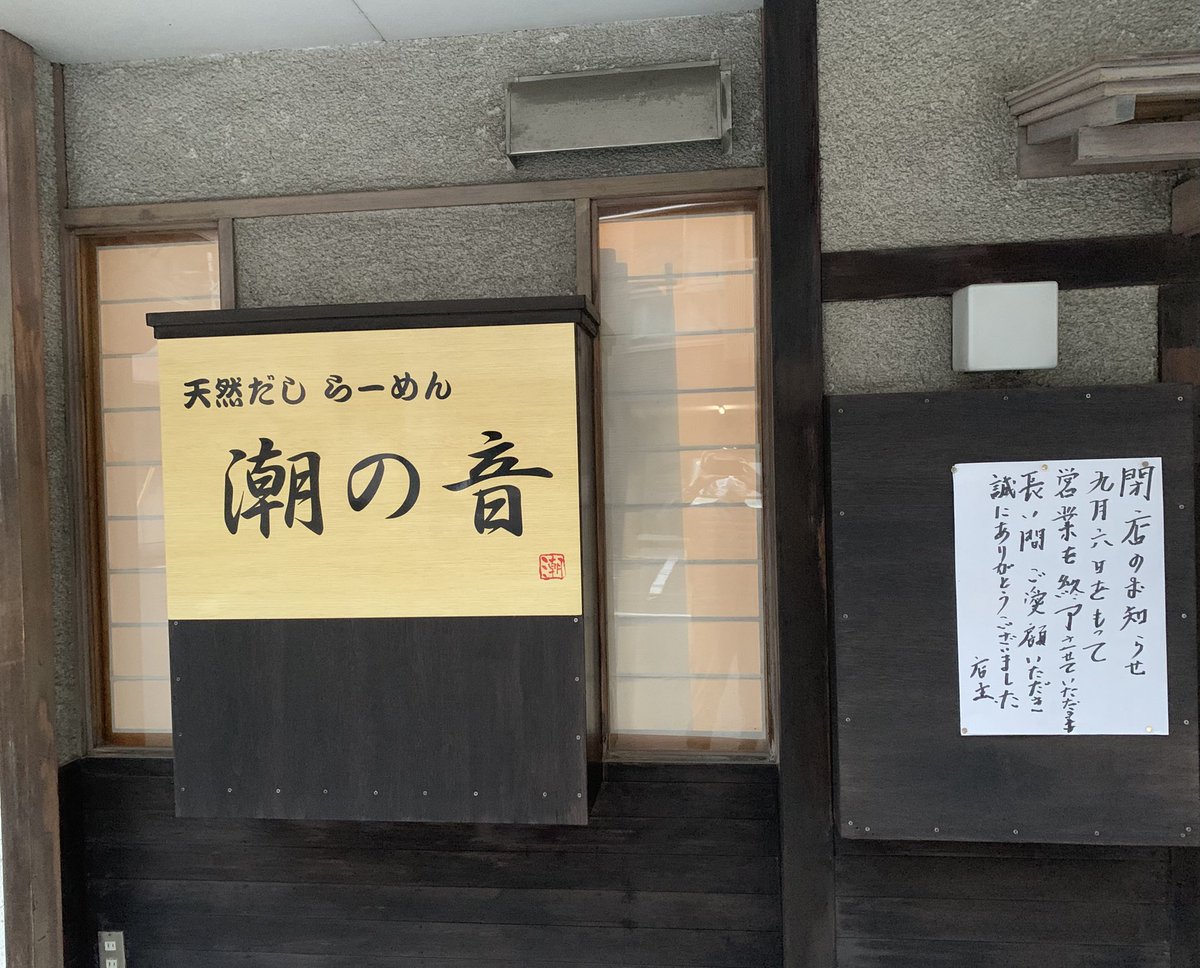 天然だし らーめん
潮の音
潮
閉店のお知らせ
九月六日をもって
営業を終了させていただきます
長い間 ご愛顧いただき
誠にありがとうございました
店主